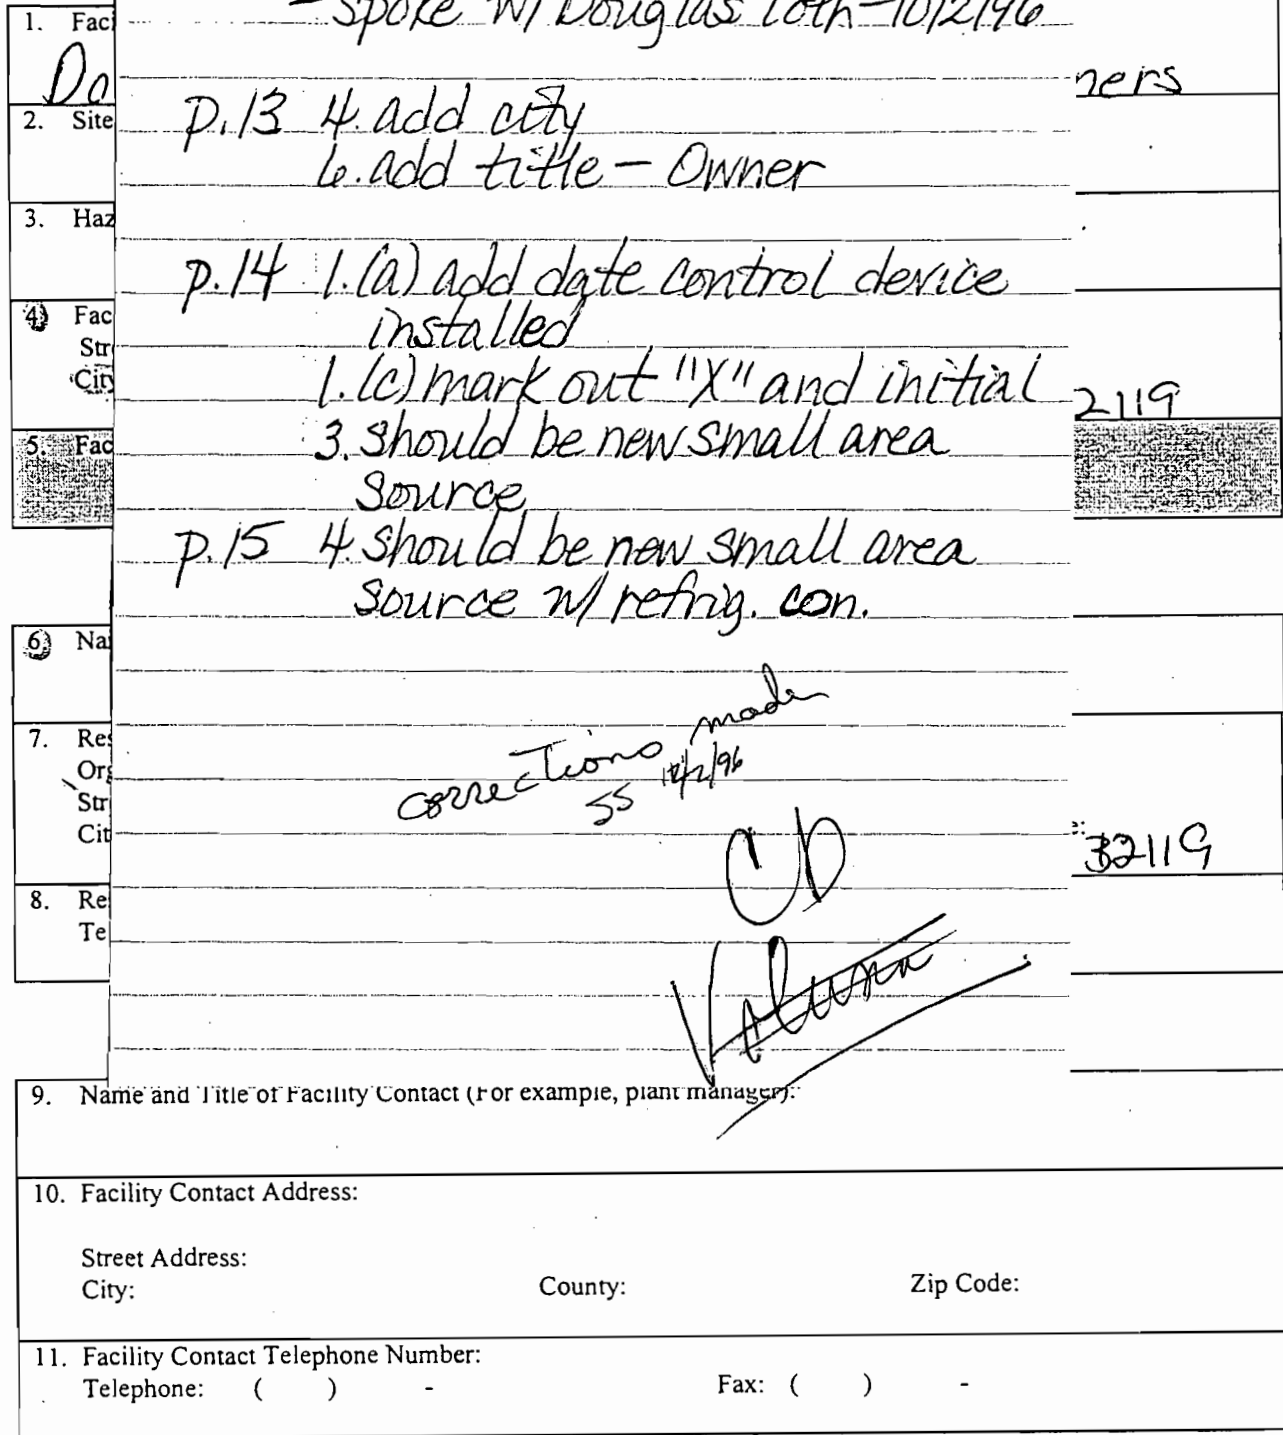 1. Fac
- Spoke w/ Douglas Toth - 10/2/96
Do
ners
2. Site
p.13 4. add city
6. add title - Owner
3. Haz
p.14 1.(a) add date control device
installed
4) Fac
Str
City
1.(c) mark out "X" and initial
2119
5. Fac
3. should be new small area
source
p.15 4. should be new small area
source w/ refrig. con.
6) Na
corrections made
SS 10/2/96
7. Res
Org
Str
Cit
CD
e:
32119
8. Re
Te
Volusia
9. Name and Title of Facility Contact (For example, plant manager):
10. Facility Contact Address:
Street Address:
City: County: Zip Code:
11. Facility Contact Telephone Number:
Telephone: ( ) - Fax: ( ) -